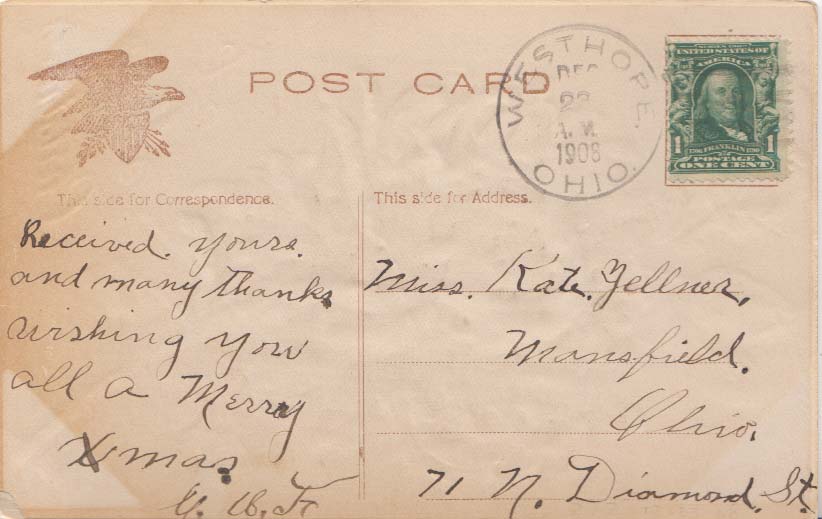 POST CARD
WESTHOPE.
DEC
A.M.
1908
OHIO.
SERIES 1902
UNITED STATES OF
AMERICA
1 FRANKLIN 1
POSTAGE
ONE CENT
This side for Correspondence.
Received. yours.
and many thanks.
wishing you
all a Merry
Xmas.
This side for Address.
Miss. Kate. Zellner,
Mansfield.
Ohio.
71 N. Diamond. St.